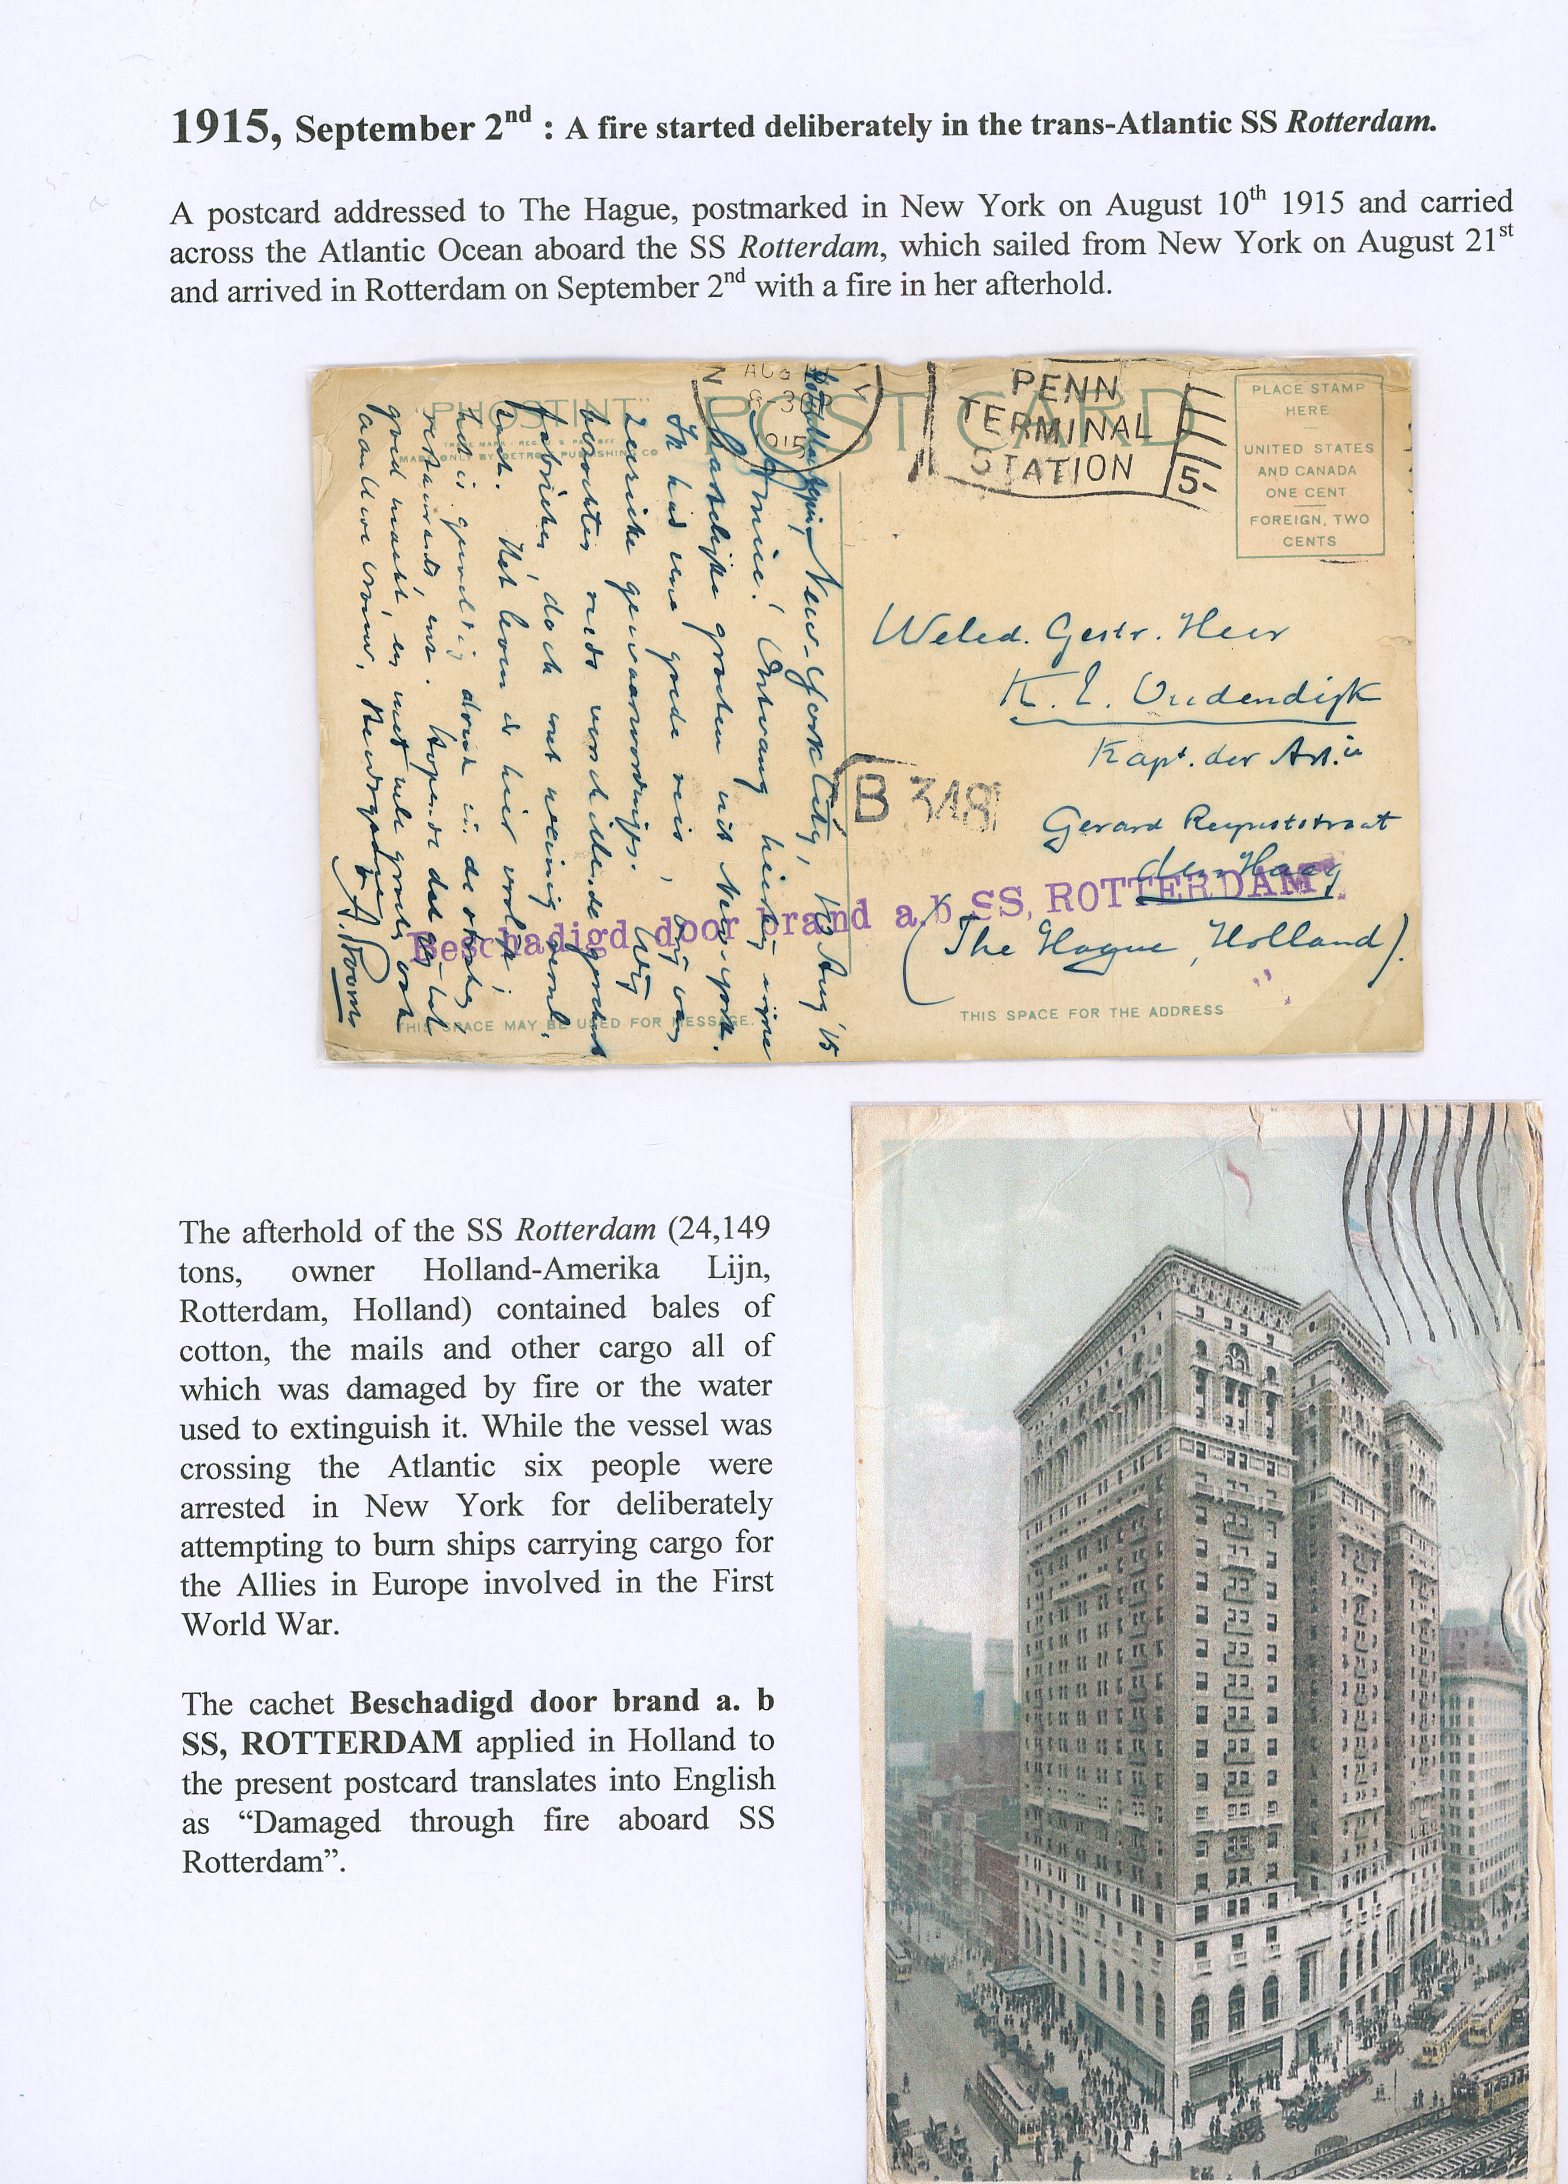 1915, September 2nd : A fire started deliberately in the trans-Atlantic SS Rotterdam.
A postcard addressed to The Hague, postmarked in New York on August 10th 1915 and carried
across the Atlantic Ocean aboard the SS Rotterdam, which sailed from New York on August 21st
and arrived in Rotterdam on September 2nd with a fire in her afterhold.
"PHOSTINT"
MADE ONLY BY DETROIT PUBLISHING CO
POST CARD
N AUG Y
1915
PENN
TERMINAL
STATION
5-
PLACE STAMP
HERE
UNITED STATES
AND CANADA
ONE CENT
FOREIGN, TWO
CENTS
New-York City, 10 Aug '15
Amice! Ontvang hierbij mijne
hartelijke groeten uit New-york.
Ik had eene goede reis,
zeer gewaarwordings.
bezochten reeds verschillende
fabrieken, doch met weinig
Het leven is hier
Het is geweldig druk in de
restaurants, enz. Hopende dat
goed maakt, en met vele groeten, ook
aan Uwe vrouw,
Weled. Gestr. Heer
K. L. Oudendijk
Kapt. der Art.ie
Gerard Reynststraat
den Haag
(The Hague, Holland).
B 348
Beschadigd door brand a.b SS, ROTTERDAM
THIS SPACE MAY BE USED FOR MESSAGE.
THIS SPACE FOR THE ADDRESS
The afterhold of the SS Rotterdam (24,149
tons, owner Holland-Amerika Lijn,
Rotterdam, Holland) contained bales of
cotton, the mails and other cargo all of
which was damaged by fire or the water
used to extinguish it. While the vessel was
crossing the Atlantic six people were
arrested in New York for deliberately
attempting to burn ships carrying cargo for
the Allies in Europe involved in the First
World War.
The cachet Beschadigd door brand a. b
SS, ROTTERDAM applied in Holland to
the present postcard translates into English
as “Damaged through fire aboard SS
Rotterdam”.